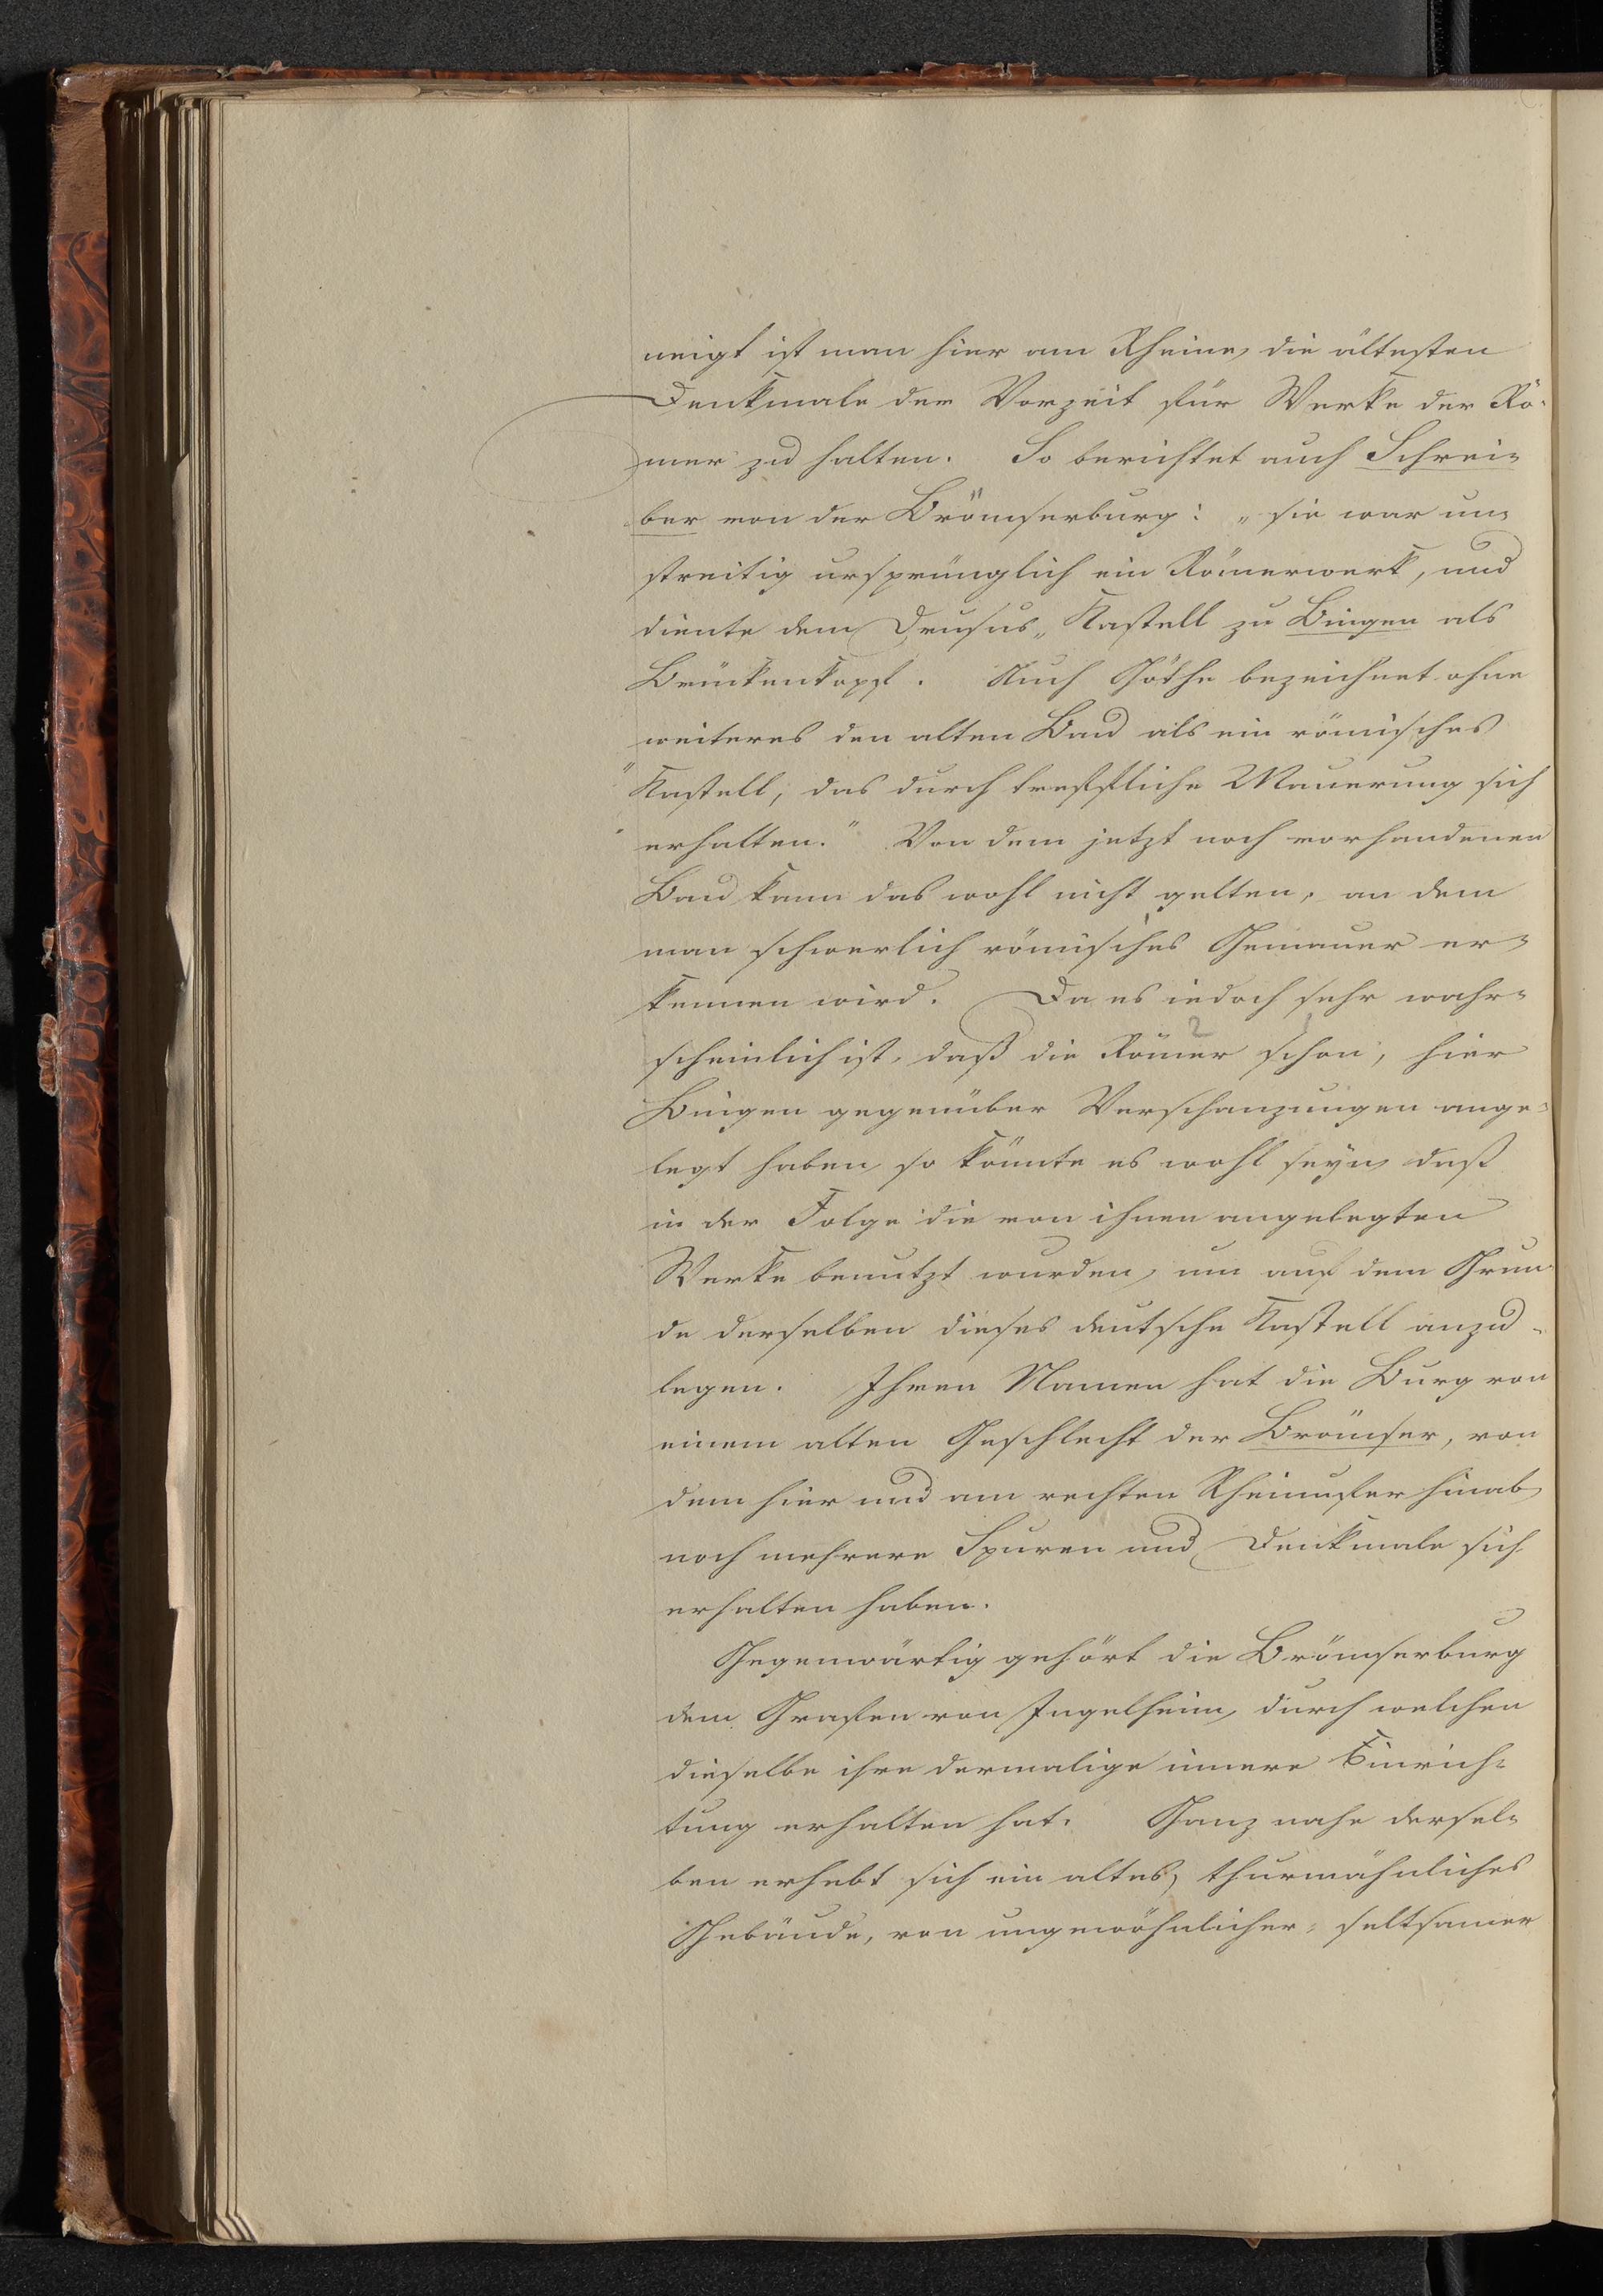 neigt ist man hier am Rheine, die ältesten
Denkmale der Vorzeit für Werke der Rö-
mer zu halten. So berichtet auch Schrei-
ber von der Brömserburg: „sie war un-
streitig ursprünglich ein Römerwerk, und
diente dem Drusus„Kastell zu Bingen als
Brückenkopf. Auch Göthe bezeichnet ohne
weiteres den alten Bau als ein römisches
"Kastell, das durch treffliche Mauerung sich
"erhalten." Von dem jetzt noch vorhandenen
Bau kann das wohl nicht gelten, an dem
man schwerlich römisches Gemäuer er-
kennen wird. Da es iedoch sehr wahr-
scheinlich ist, daß die Römer schon, hier
Bingen gegenüber Verschanzungen ange-
legt haben, so könnte es wohl seyn, daß
in der Folge die von ihnen angelegten
Werke benutzt wurden, um auf dem Grun-
de derselben dieses deutsche Kastell anzu-
legen. Ihren Namen hat die Burg von
einem alten Geschlecht der Brömser, von
dem hier und am rechten Rheinufer hinab,
noch mehrere Spuren und Denkmale sich
erhalten haben.
Gegenwärtig gehört die Brömserburg
dem Grafen von Ingelheim, durch welchen
dieselbe ihre dermalige innere Einrich-
tung erhalten hat. Ganz nahe dersel-
ben erhebt sich ein altes, thurmähnliches
Gebäude, von ungewöhnlicher, seltsamer